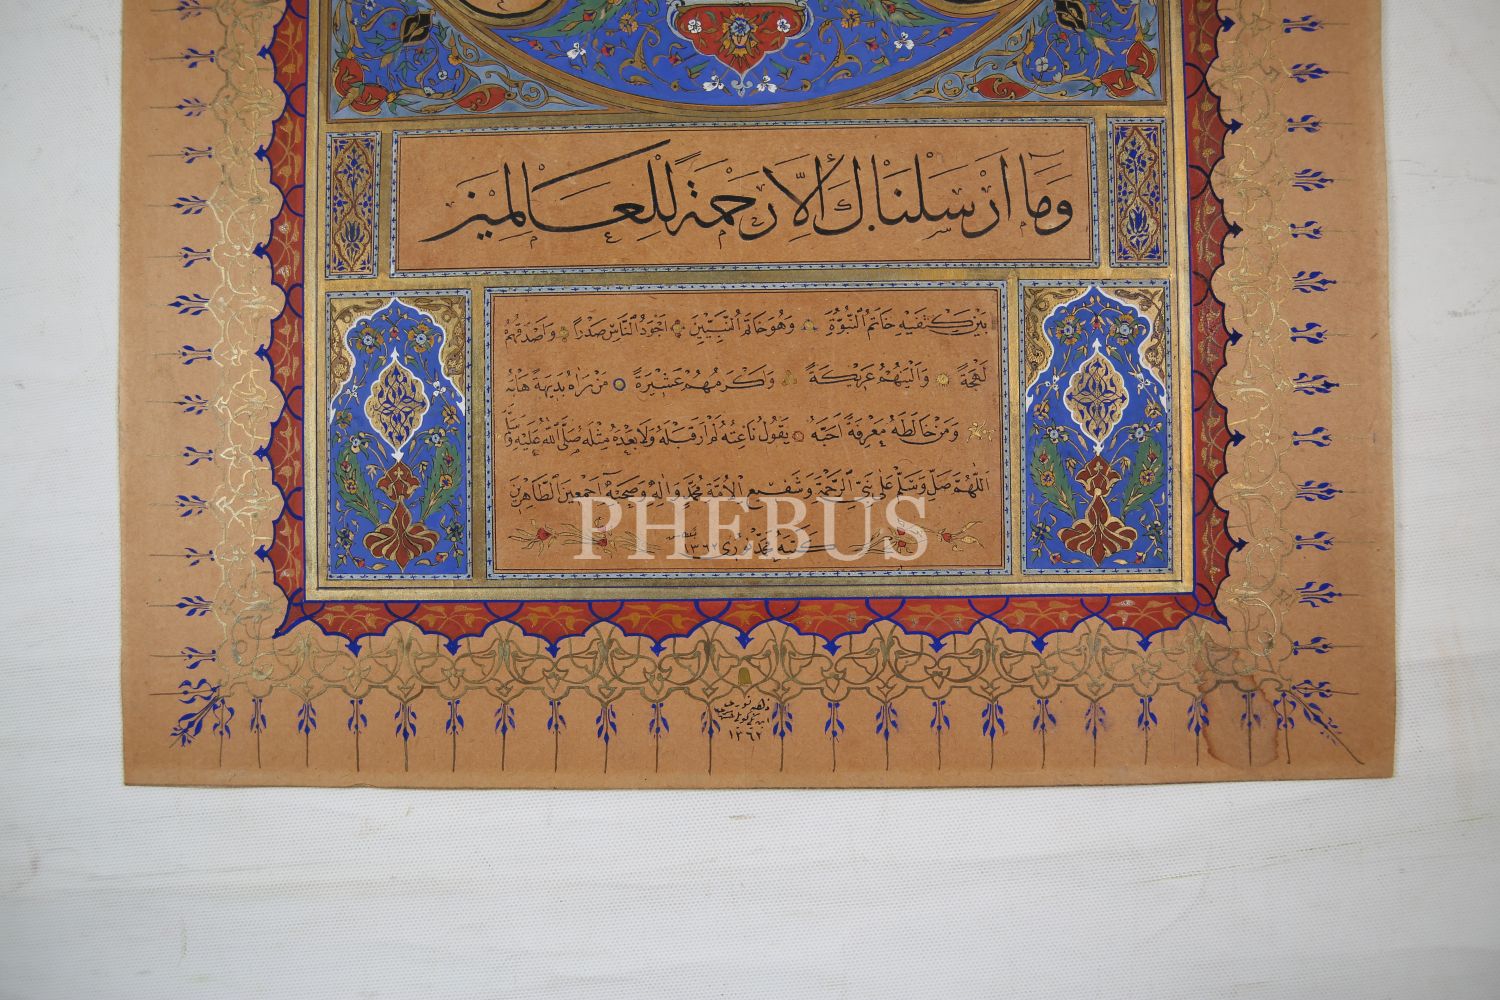 وَمَا اَرْسَلْنَاكَ اِلَّا رَحْمَةً لِلْعَالَمِينَ
بَيْنَ كَتِفَيْهِ خَاتَمُ النُّبُوَّةِ وَهُوَ خَاتَمُ النَّبِيِّينَ اَجْوَدُ النَّاسِ صَدْرًا وَاَصْدَقُهُمْ
لَهْجَةً وَاَلْيَنُهُمْ عَرِيكَةً وَاَكْرَمُهُمْ عَشِيرَةً مَنْ رَاٰهُ بَدِيهَةً هَابَهُ
وَمَنْ خَالَطَهُ مَعْرِفَةً اَحَبَّهُ يَقُولُ نَاعِتُهُ لَمْ اَرَ قَبْلَهُ وَلَا بَعْدَهُ مِثْلَهُ صَلَّى اللّٰهُ عَلَيْهِ وَسَلَّمَ
اَللّٰهُمَّ صَلِّ وَسَلِّمْ عَلٰى نَبِيِّ الرَّحْمَةِ وَشَفِيعِ الْاُمَّةِ مُحَمَّدٍ وَاٰلِهِ وَصَحْبِهِ اَجْمَعِينَ الطَّاهِرِينَ
كتبه محمد نوري ١٣٦٢
PHEBUS
١٣٦٢